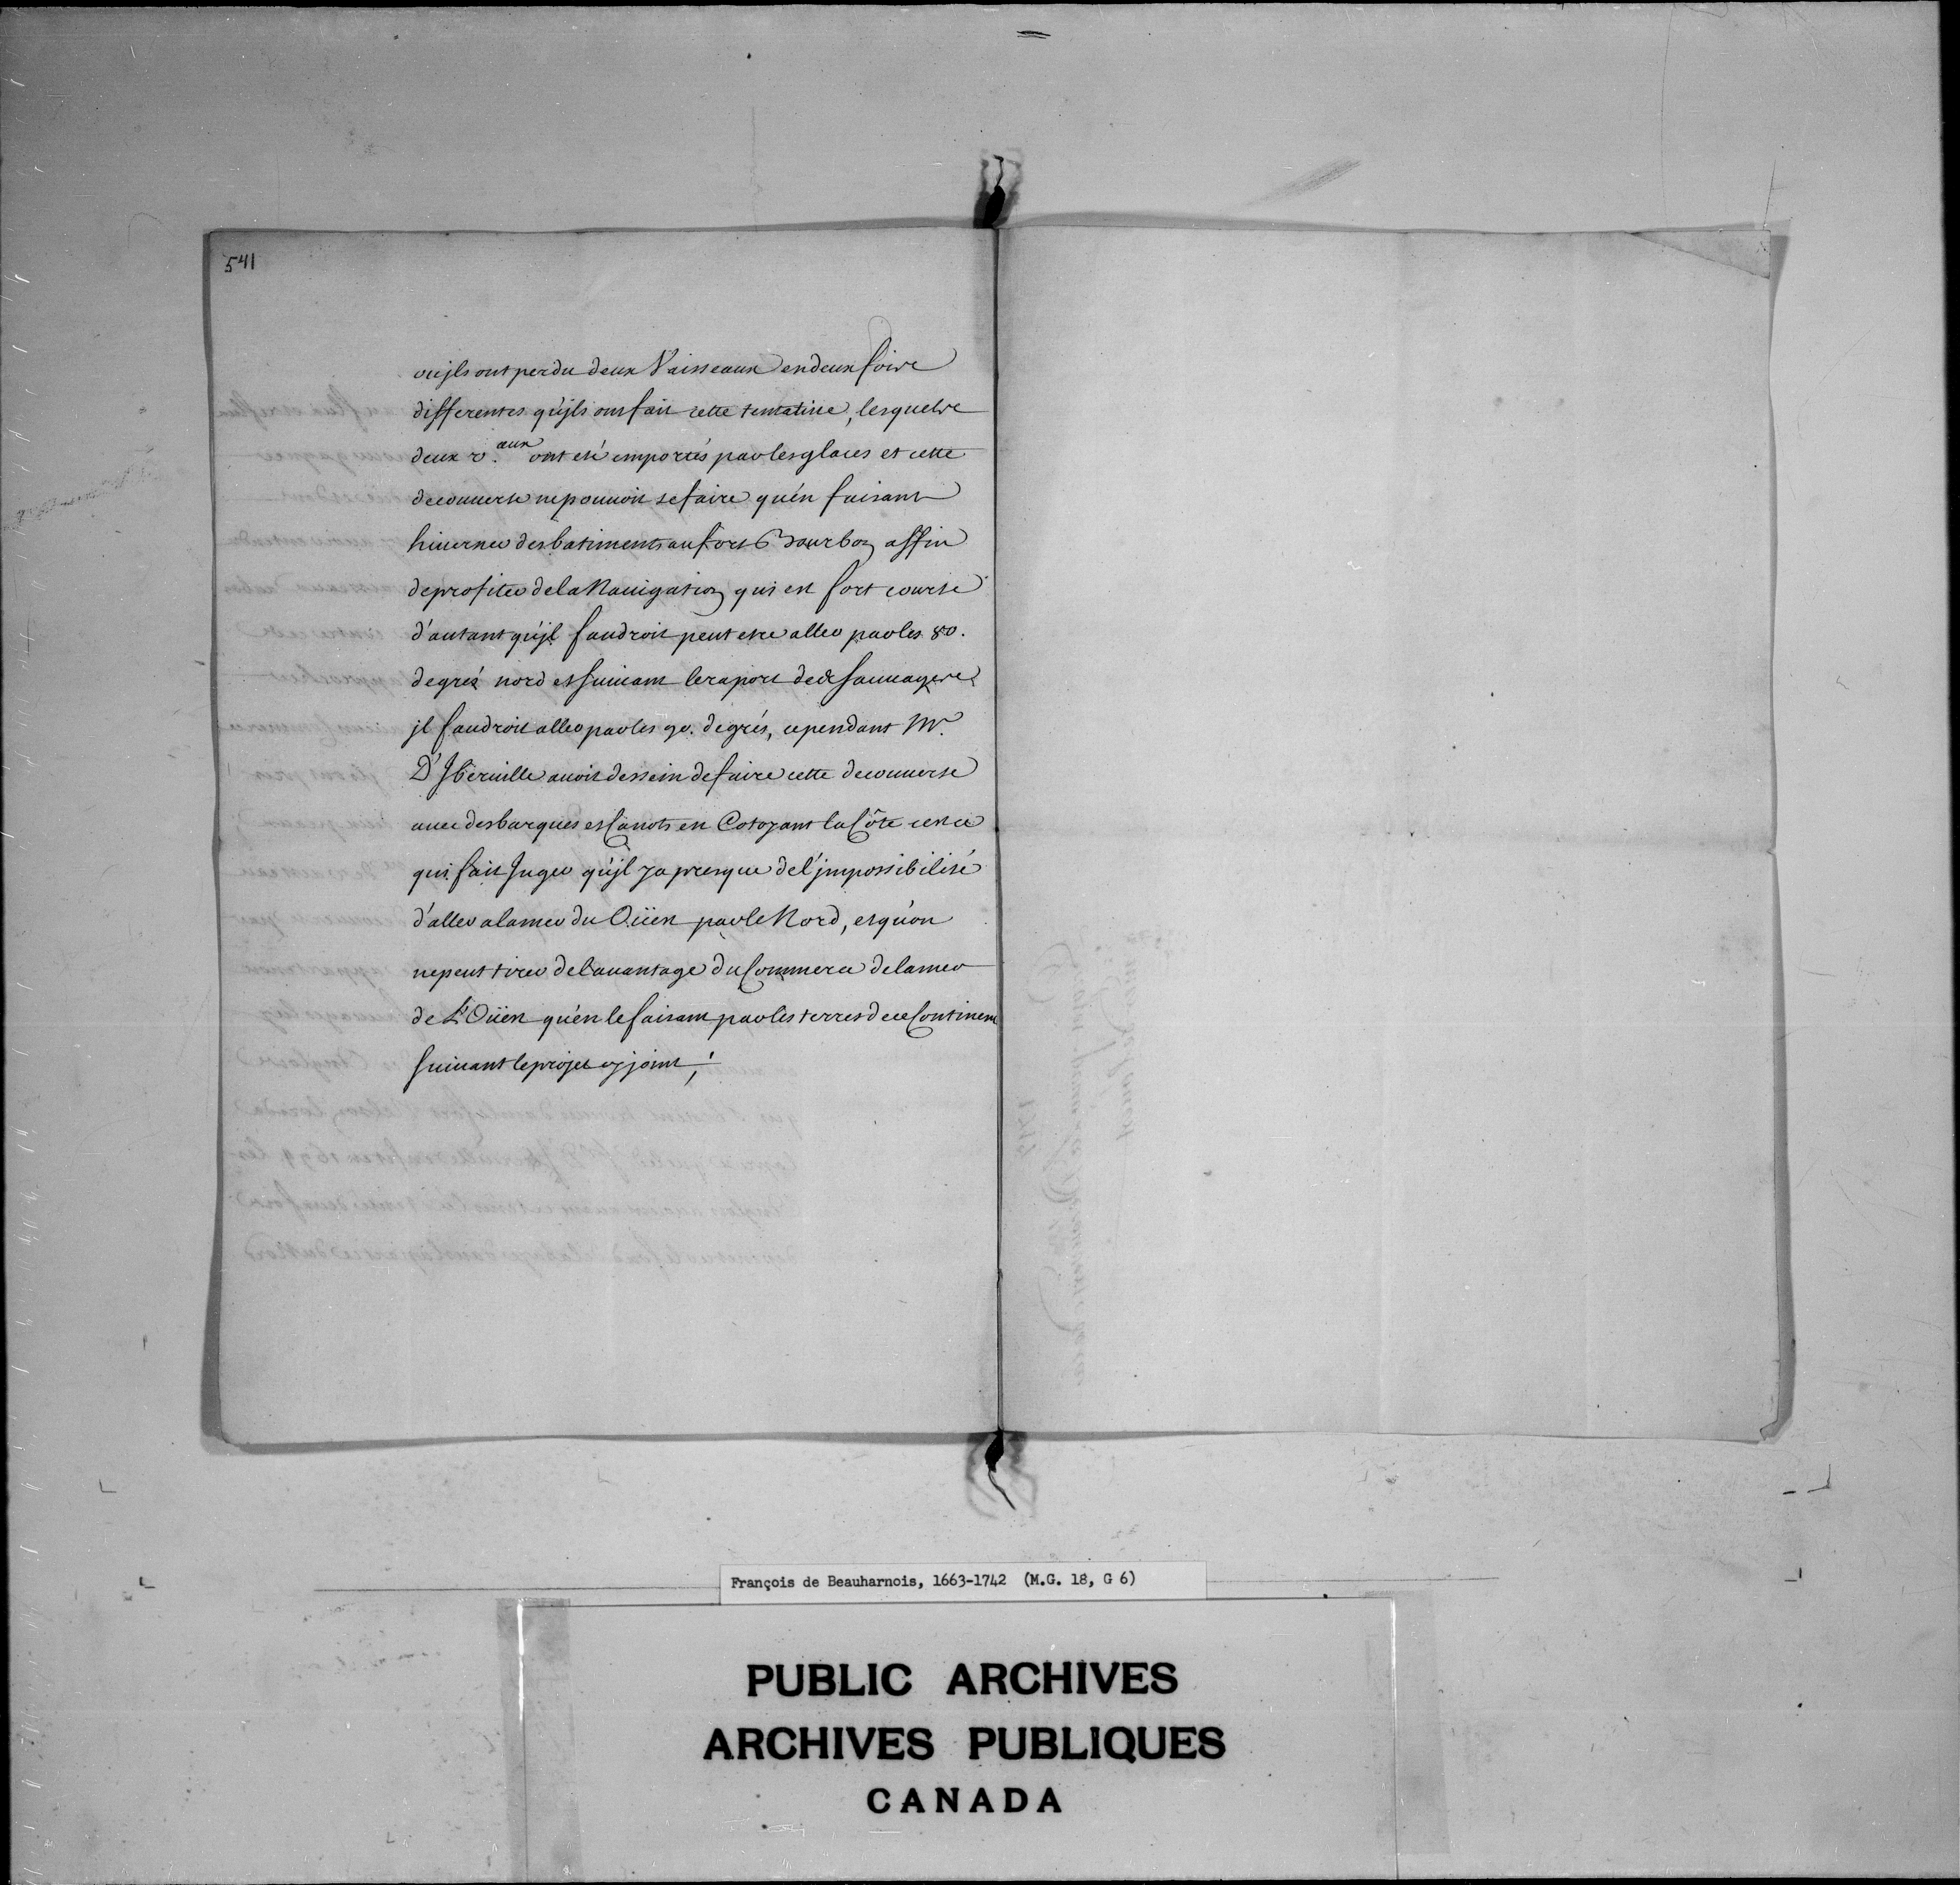 541
ou jls ont perdu deux Vaisseaux en deux fois
differentes qu'jls ont fait cette tentative, lesquels
deux v.aux ont eté emportés par les glaces et cette
decouuerte ne pouuoit se faire qu'en faisant
hiuerner des batiments au fort Bourbon affin
de profiter de la Nauigation qui est fort courte
d'autant qu'jl faudroit peut etre aller par les 80.
degrés nord et suiuant le raport des sauuages
jl faudroit aller par les 90. degrés, cependant Mr.
D'Jberuille auoit dessein de faire cette decouuerte
auec des barques et Canots en Cotoyant la Côte cest ce
qui fait Juger qu'jl y a presque de l'jmpossibilité
d'aller a la mer du Oüest par le Nord, et qu'on
ne peut tirer de lauantage du Commerce de la mer
de L'Oüest qu'en le faisant par les terres de ce Continent
suiuant le projet cy joint;
François de Beauharnois, 1663-1742 (M.G. 18, G 6)
PUBLIC ARCHIVES
ARCHIVES PUBLIQUES
CANADA